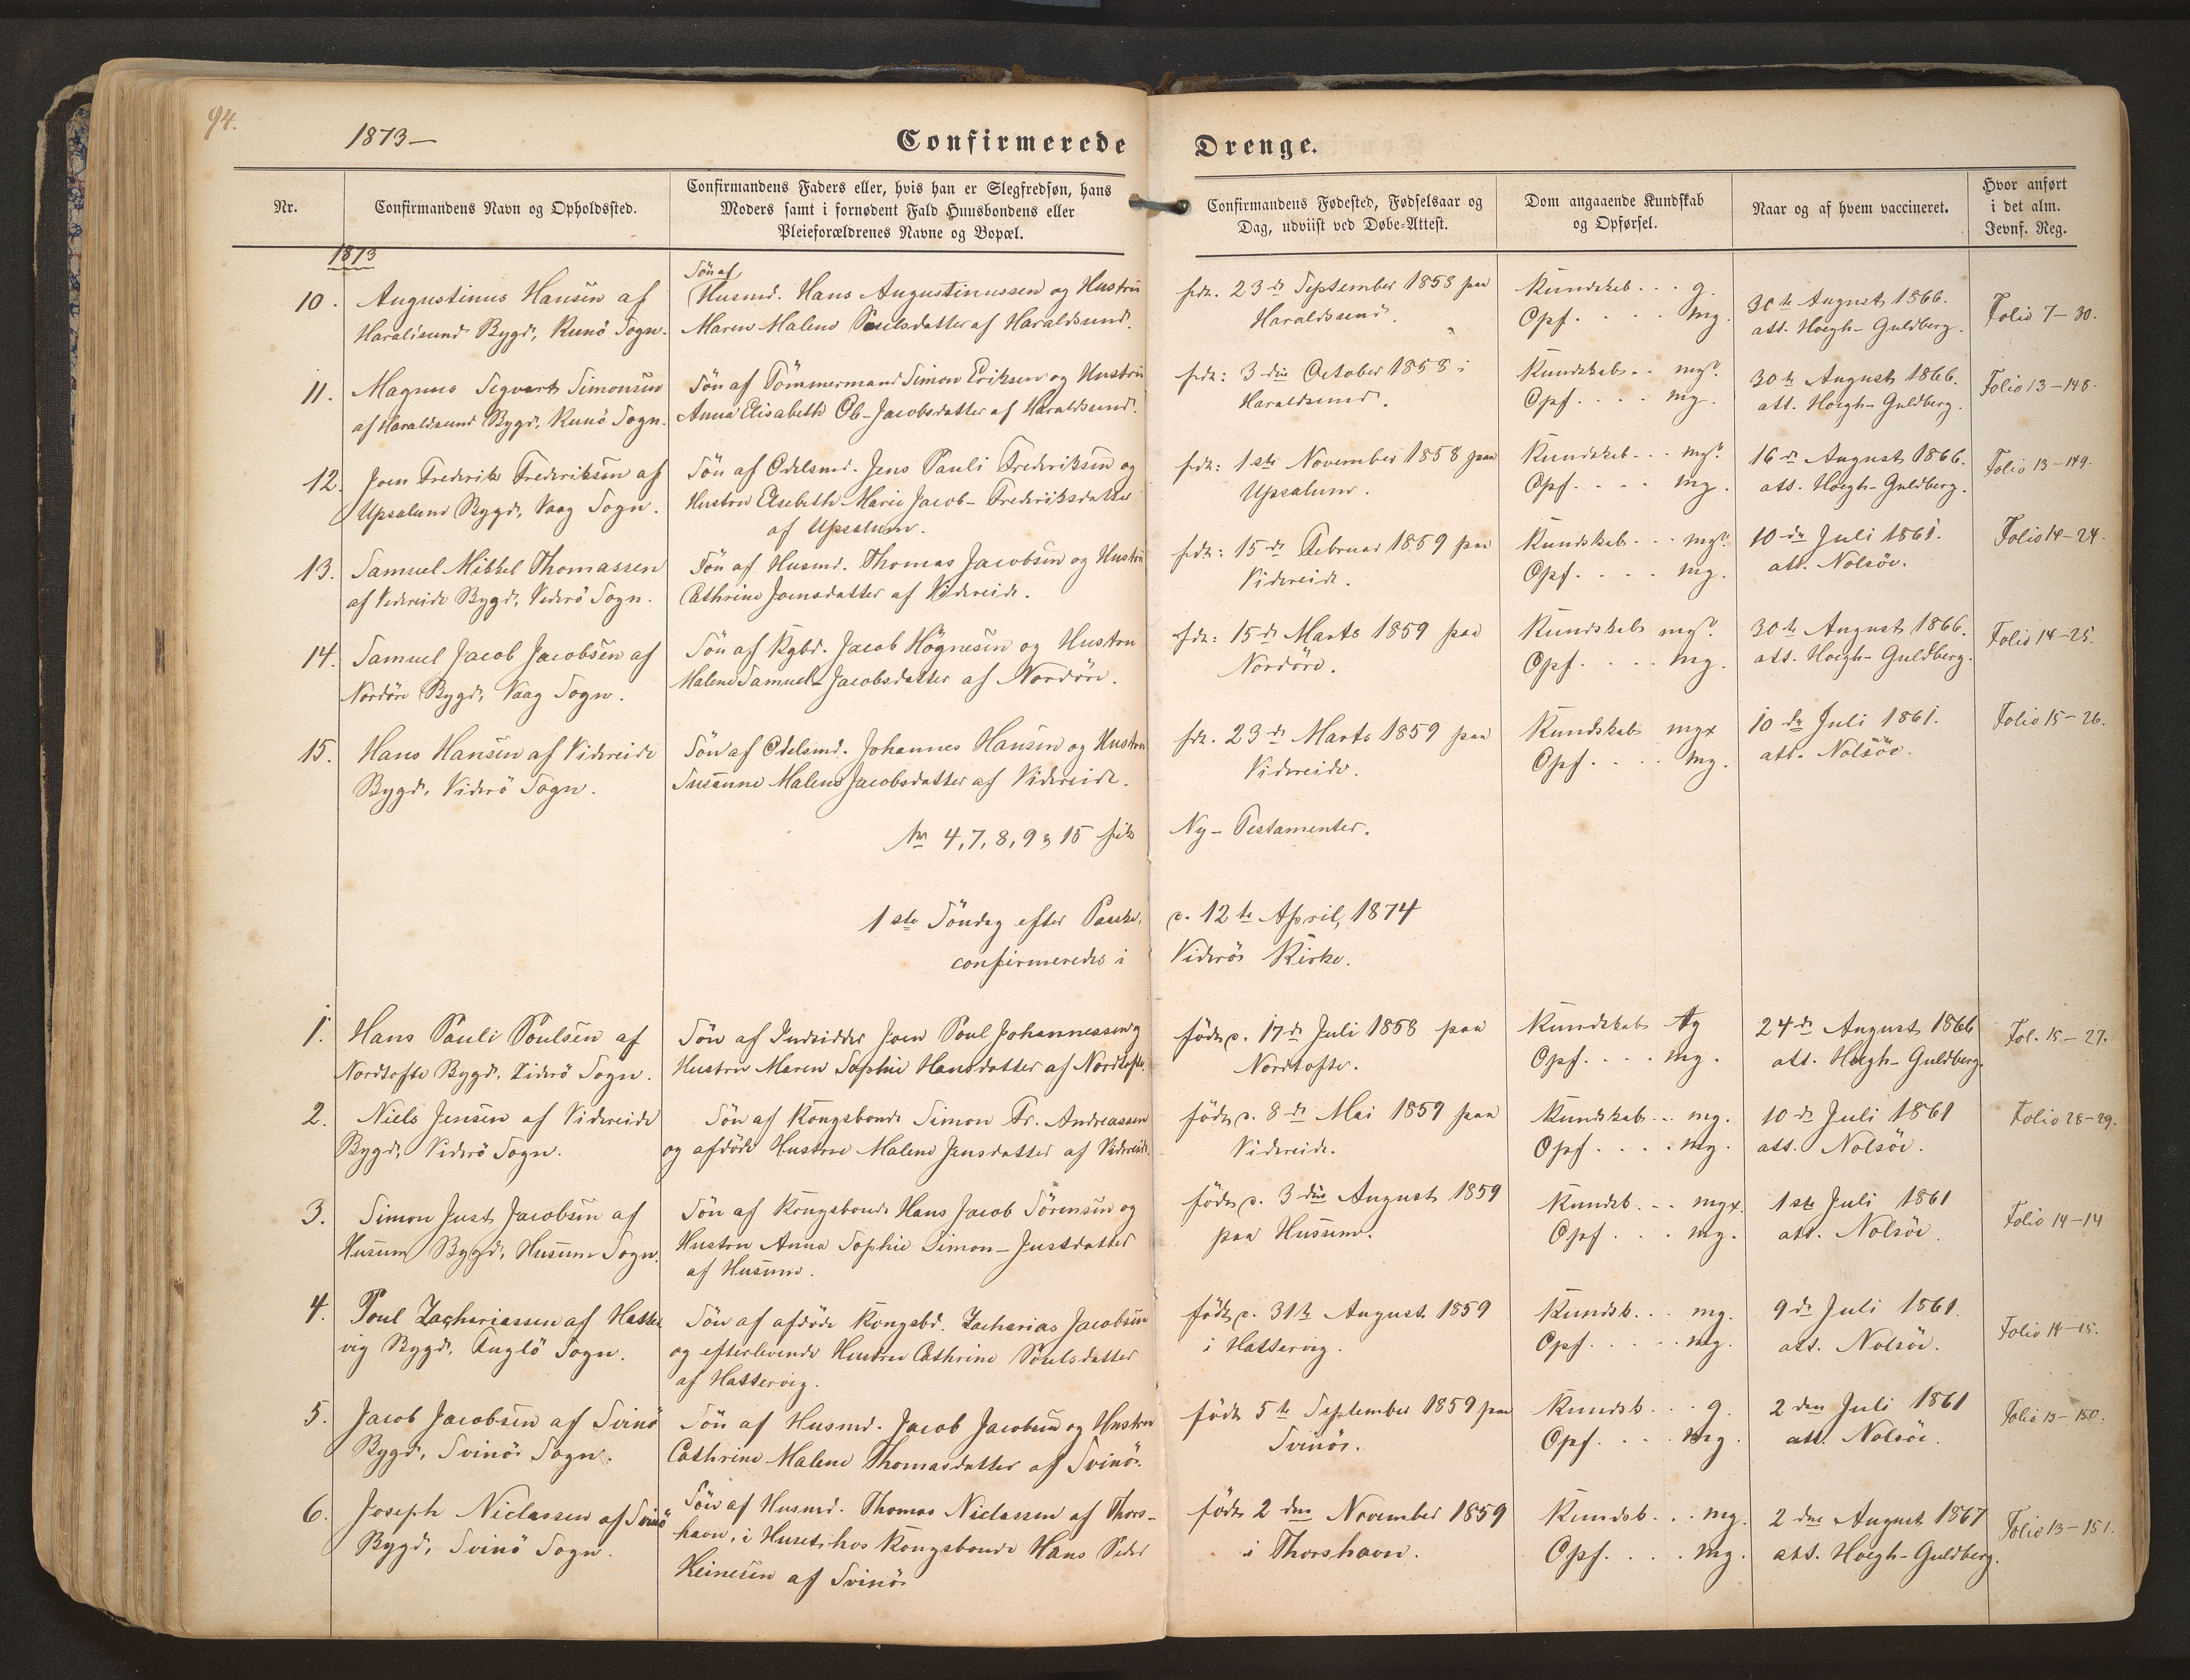 94.
1873—
Confirmerede Drenge.
Nr.
Confirmandens Navn og Opholdssted.
Confirmandens Faders eller, hvis han er Slegfredsøn, hans
Moders samt i fornødent Fald Huusbondens eller
Pleieforældrenes Navne og Bopæl.
Confirmandens Fødested, Fødselsaar og
Dag, udviist ved Døbe-Attest.
Dom angaaende Kundskab
og Opførsel.
Naar og af hvem vaccineret.
Hvor anført
i det alm.
Jevnf. Reg.
1873
10. Augustinus Hansen af
Haraldsund Bygd, Kunö Sogn.
Sön af
Husmd. Hans Augustinussen og Hustru
Maren Malene Poulsdatter af Haraldsund.
fdt. 23de September 1858 paa
Haraldssund.
Kundskab . . . g.
Opf. . . . . mg.
30te August 1866.
att. Hoegh-Guldberg.
Folio 7—30.
11. Magnus Segvert Simonsen
af Haraldsund Bygd, Kunö Sogn.
Sön af Tömmermand Simon Eriksen og Hustru
Anna Elisabeth Ob-Jacobsdatter af Haraldsund.
fdt: 3die October 1858 i
Haraldsund.
Kundskab . . mg?
Opf. . . . . mg.
30te August 1866.
att. Hoegh-Guldberg.
Folio 13—148.
12. Joen Frederik Frederiksen af
Upsalum Bygd, Vaag Sogn.
Sön af Odelsmd. Jens Pauli Frederiksen og
Hustru Elsebeth Marie Jacob-Frederiksdatter
af Upsalum.
fdt: 1ste November 1858 paa
Upsalum.
Kundskab . . . mg?
Opf. . . . mg.
16de August 1866.
att. Hoegh-Guldberg.
Folio 13—149.
13. Samuel Mikkel Thomassen
af Videreide Bygd, Viderö Sogn.
Sön af Husmd. Thomas Jacobsen og Hustru
Cathrine Joensdatter af Videreide.
fdt: 15de Februar 1859 paa
Videreide.
Kundskab . . . mg?
Opf. . . . . mg.
10de Juli 1861.
att. Nolsöe.
Folio 14—24.
14. Samuel Jacob Jacobsen af
Nordöre Bygd, Vaag Sogn.
Sön af Kgbd. Jacob Högnesen og Hustru
Malene Samuel-Jacobsdatter af Nordöre.
fdt: 15de Marts 1859 paa
Nordöre.
Kundskab mg?
Opf. . . . . mg.
30te August 1866.
att. Hoegh-Guldberg.
Folio 14—25.
15. Hans Hansen af Videreide
Bygd, Viderö Sogn.
Sön af Odelsmd. Johannes Hansen og Hustru
Susanne Malene Jacobsdatter af Videreide.
fdt. 23de Marts 1859 paa
Videreide.
Kundskab mgx
Opf. . . . . mg.
10de Juli 1861.
att. Nolsöe.
Folio 15—26.
Nr 4, 7, 8, 9 & 15 fik Ny-Testamenter.
1ste Söndag efter Paaske, d. 12te April, 1874
confirmeredes i Viderös Kirke.
1. Hans Pauli Poulsen af
Nordtofte Bygd, Viderö Sogn.
Sön af Indsidder Joen Poul Johannessen og
Hustru Maren Sophie Hansdatter af Nordtofte.
födt d. 17de Juli 1858 paa
Nordtofte.
Kundskab tg
Opf. . . . mg.
24de August 1866
att. Hoegh-Guldberg.
Fol. 15—27.
2. Niels Jensen af Videreide
Bygd, Viderö Sogn.
Sön af Kongsbonde Simon Fr. Andreassen
og afdöde Hustru Malene Jensdatter af Videreide.
födt d. 8de Mai 1859 paa
Videreide.
Kundskab . . mg.
Opf. . . . . mg.
10de Juli 1861
att. Nolsöe.
Folio 28—29.
3. Simon Just Jacobsen af
Husum Bygd, Husum Sogn.
Sön af Kongsbonde Hans Jacob Sörensen og
Hustru Anna Sophie Simon-Justdatter
af Husum.
födt d. 3die August 1859
paa Husum.
Kundsk. . . . mgx.
Opf. . . . mg.
1ste Juli 1861
att. Nolsöe.
Folio 14—14
4. Poul Zachariassen af Hatter
vig Bygd, Fuglö Sogn.
Sön af afdöde Kongsbd. Zacharias Jacobsen
og efterlevende Hustru Cathrine Poulsdatter
af Hattervig.
födt d. 31te August 1859
i Hattervig.
Kundsk. . . mg.
Opf. . . . . mg.
9de Juli 1861.
att. Nolsöe.
Folio 14—15.
5. Jacob Jacobsen af Svinö
Bygd, Svinö Sogn.
Sön af Husmd. Jacob Jacobsen og Hustru
Cathrine Malene Thomasdatter af Svinö.
födt 5te September 1859 paa
Svinö.
Kundsk. . . . g.
Opf. . . . . mg.
2den Juli 1861
att. Nolsöe.
Folio 13—150.
6. Joseph Niclassen af Svinö
Bygd, Svinö Sogn.
Sön af Husmd. Thomas Niclassen af Thors-
havn, i Huset hos Kongsbonde Hans Peder
Heinesen af Svinö
födt 2den November 1859
i Thorshavn.
Kundsk. . . . mg.
Opf. . . . . mg.
2den August 1867
att. Hoegh-Guldberg.
Folio 13—151.